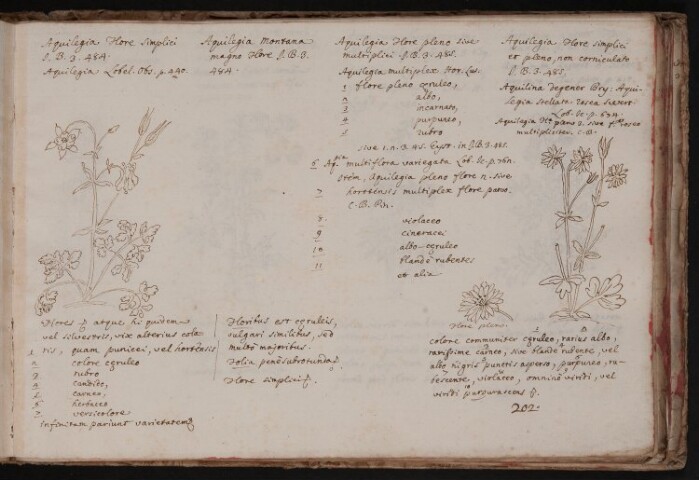 Aquilegia flore simplici
J.B. 3. 484.
Aquilegia Lobel. Obs. p.
Aquilegia montana
magno flore J.B.3.
484.
Aquilegia flore pleno sive
multiplici J.B.3.485.
Aquilegia multiplex Hor. Lus.
1 flore pleno cęruleo,
2 albo,
3 incarnato,
4 purpureo,
5 rubro
sive 1.2.3.4.5. Eyst. in J.B.3.485.
6 multiflora variegata Lob. Ic. p.
Aquilegia pleno flore n. sive
7 hortensis multiplex flore parvo.
C.B. Pin.
8 violaceo
9 cineracei
10 albo-cęruleo
11 blandè rubentes
et alia
Aquilegia flore simplici
et pleno, non corniculato
J.B.3.485.
Aquilina degener Bry. Aqui-
legia stellata rosea
Lob. Ic. p.
Aquilegia plans 2. sive roseo
multipliciter. C.B.
Flores atque hi quidem
vel silvestris, vix alterius colo-
1 ris, quam punicei, vel hortensis
2 colore cęruleo
3 rubro
4 candito,
5 carneo,
6 herbaceo
7 versicolore
infinitam pariunt varietatem
Floribus est cęruleis,
vulgari similibus, sed
multò majoribus.
Folia penè subrotunda.
Flore simplici
Flore pleno
colore communiter cęruleo, rarius albo,
rarissime carneo, sive blandè rubente, vel
albo nigris punctis asperso, purpureo, ru-
bescente, violaceo, omninò viridi, vel
viridi purpurascens
202.